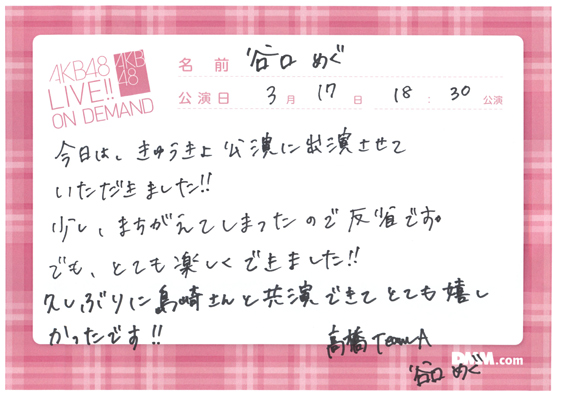 AKB48
LIVE!!
ON DEMAND
AKB
48
名前 谷口 めぐ
公演日 3月17日 18:30公演
今日は、きゅうきょ公演に出演させて
いただきました!!
少し、まちがえてしまったので反省です。
でも、とても楽しくできました!!
久しぶりに島崎さんと共演できてとても嬉し
かったです!!
高橋TeamA
谷口 めぐ
DMM.com